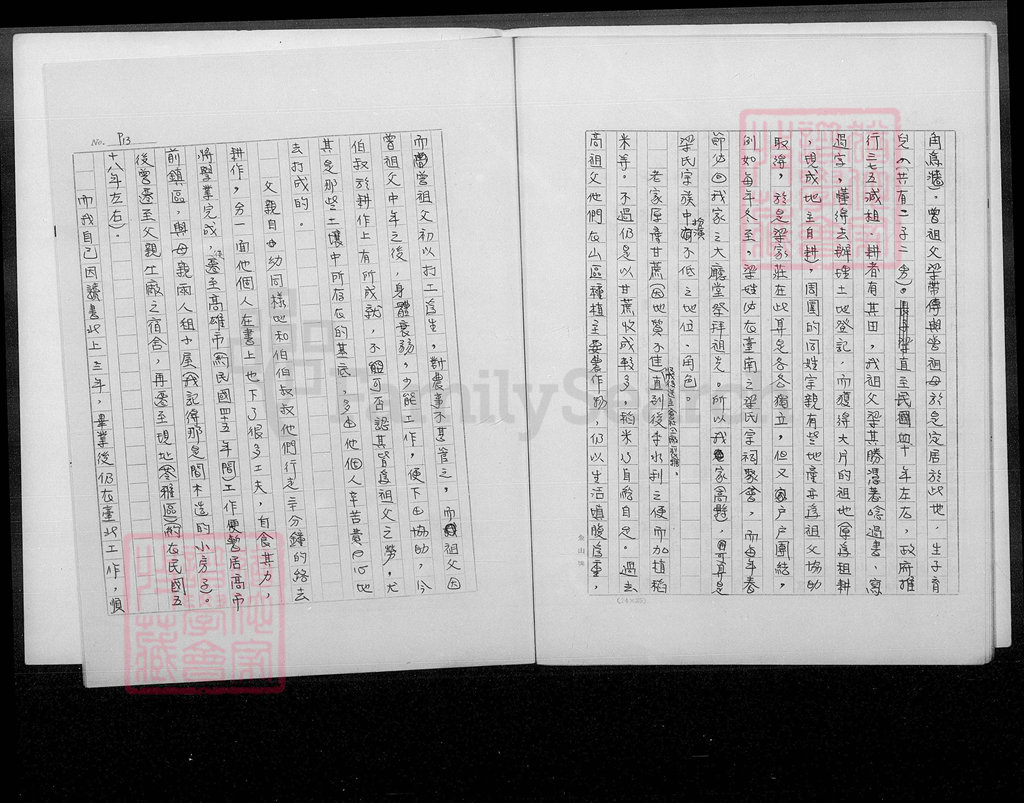 角為牆。曾祖父梁帶傳與曾祖母於是定居於此地，生子育
兒（共有二子二女）。直至民國四十年左右，政府推
行三七五減租．耕者有其田，我祖父梁其勝憑著唸過書、寫
過字，懂得去辦理土地登記，而獲得大片的祖地（原為租耕
，現成地主自耕），周圍的同姓宗親有些地產亦為祖父協助
取得，於是梁家莊在此算是各各獨立，但又戶戶團結，
例如每年冬至，梁姓必在臺南之梁氏宗祠聚會，而每年春
節必回我家之大廳堂祭拜祖先。所以我家高懸，可算是
梁氏宗族中扮演有不低之地位、角色。
老家原產甘蔗（因地質不佳）直到後來水利之便而加植稻
米等。不過仍是以甘蔗收成較多，稻米乃自給自足。過去
高祖父他們在山區種植主要農作物，仍以生活填腹為重，
而曾祖父初以打工為生，對農事不甚管之，而祖父因
曾祖父中年之後，身體衰弱，少能工作，便下田協助，今
伯叔於耕作上有所成就，不可否認其皆為祖父之勞，尤
其是那些土壤中所存在的基底，多由他個人辛苦費心地
去打成的。
父親自幼同樣地和伯伯叔叔他們行走三十分鐘的路去
耕作，另一面他個人在書上也下了很多工夫，自食其力，
將學業完成，遷至高雄市（約民國四十五年間）工作便暫居高市
前鎮區，與母親兩人組小屋（我記得那是間木造的小房子）。
後曾遷至父親工廠之宿舍，再遷至現地（苓雅區）（約在民國五
十八年左右）。
而我自己因讀書北上三年，畢業後仍在臺北工作，慎
No. P13
(24×25)
FamilySearch